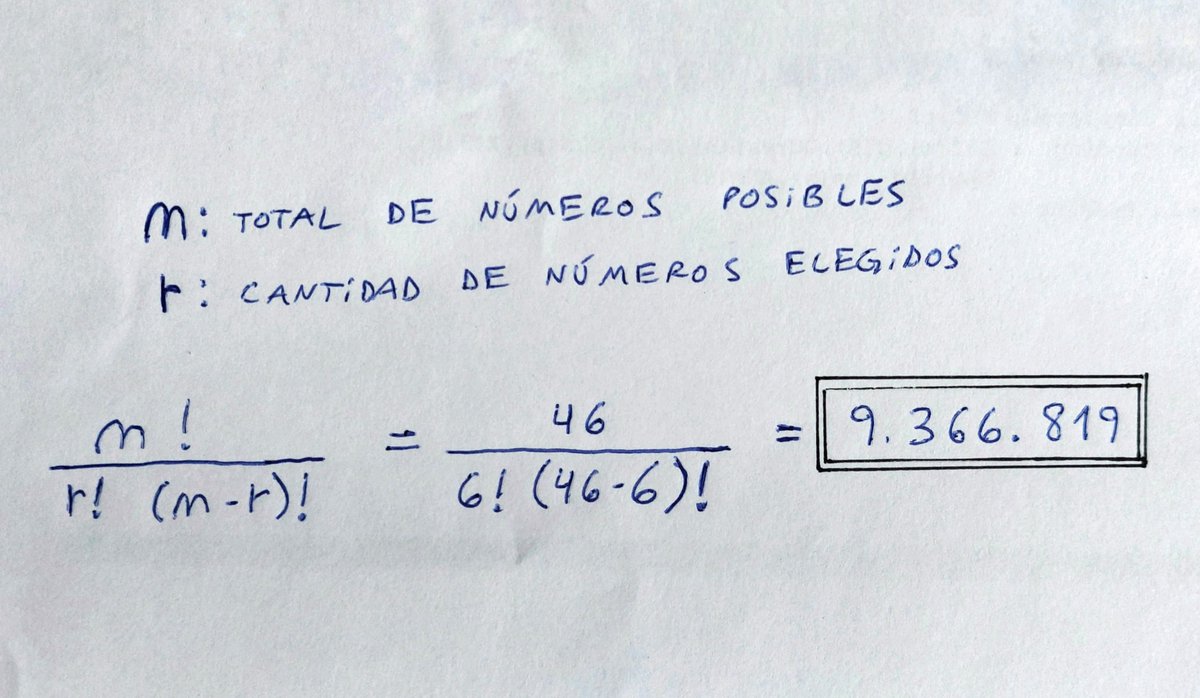 m: TOTAL DE NÚMEROS POSiBLES
r: CANTiDAD DE NÚMEROS ELEGiDOS
m! / r! (m-r)! = 46 / 6! (46-6)! = 9.366.819